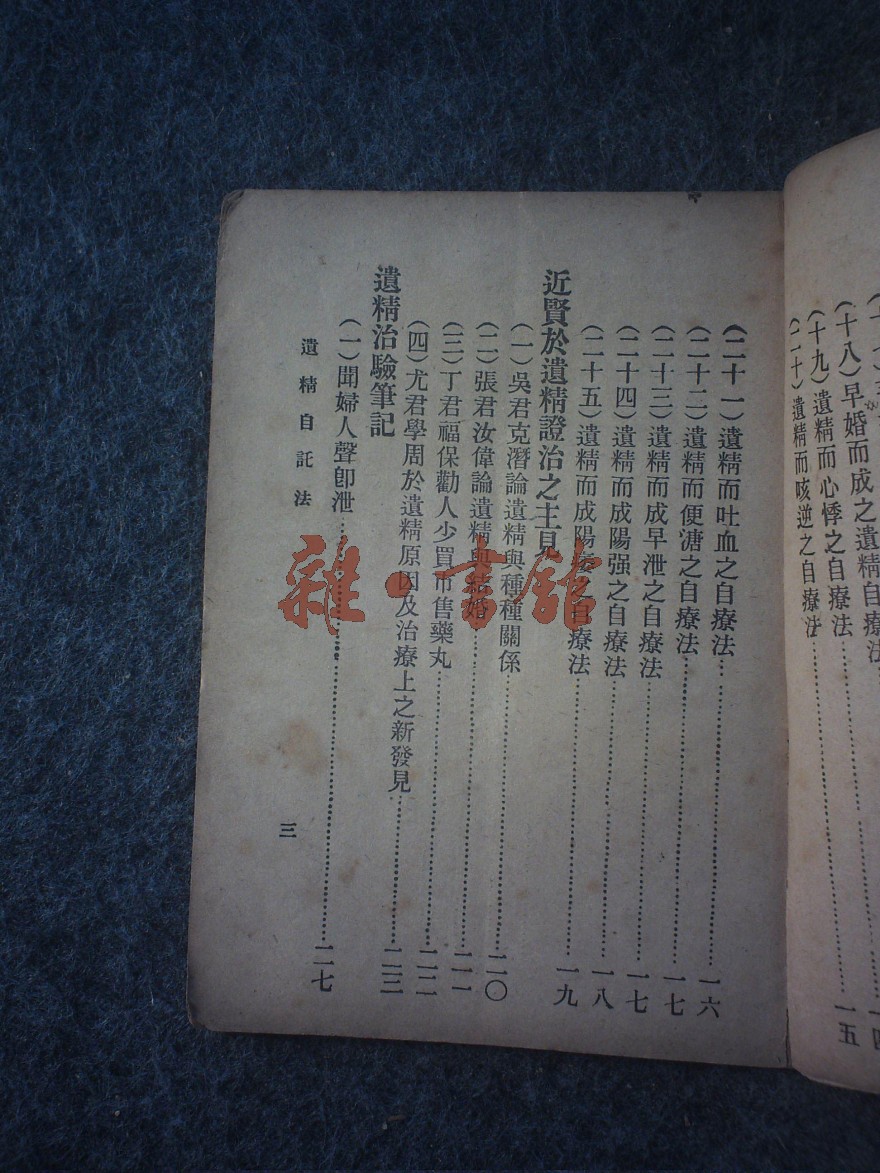 (十八)早婚而成之遺精自療法
(十九)遺精而心悸之自療法
(二十)遺精而咳逆之自療法……一五
(二十一)遺精而吐血之自療法……一六
(二十二)遺精而便溏之自療法……一七
(二十三)遺精而成早泄之自療法……一七
(二十四)遺精而成陽强之自療法……一八
(二十五)遺精而成陽痿之自療法……一九
近賢於遺精證治之主見
(一)吳君克潛論遺精與種種關係……二〇
(二)張君汝偉論遺精與結婚……二一
(三)丁君福保勸人少買市售藥丸……二二
(四)尤君學周於遺精原因及治療上之新發見……二三
遺精治驗筆記
(一)聞婦人聲卽泄……二七
遺精自託法
三
雜書館